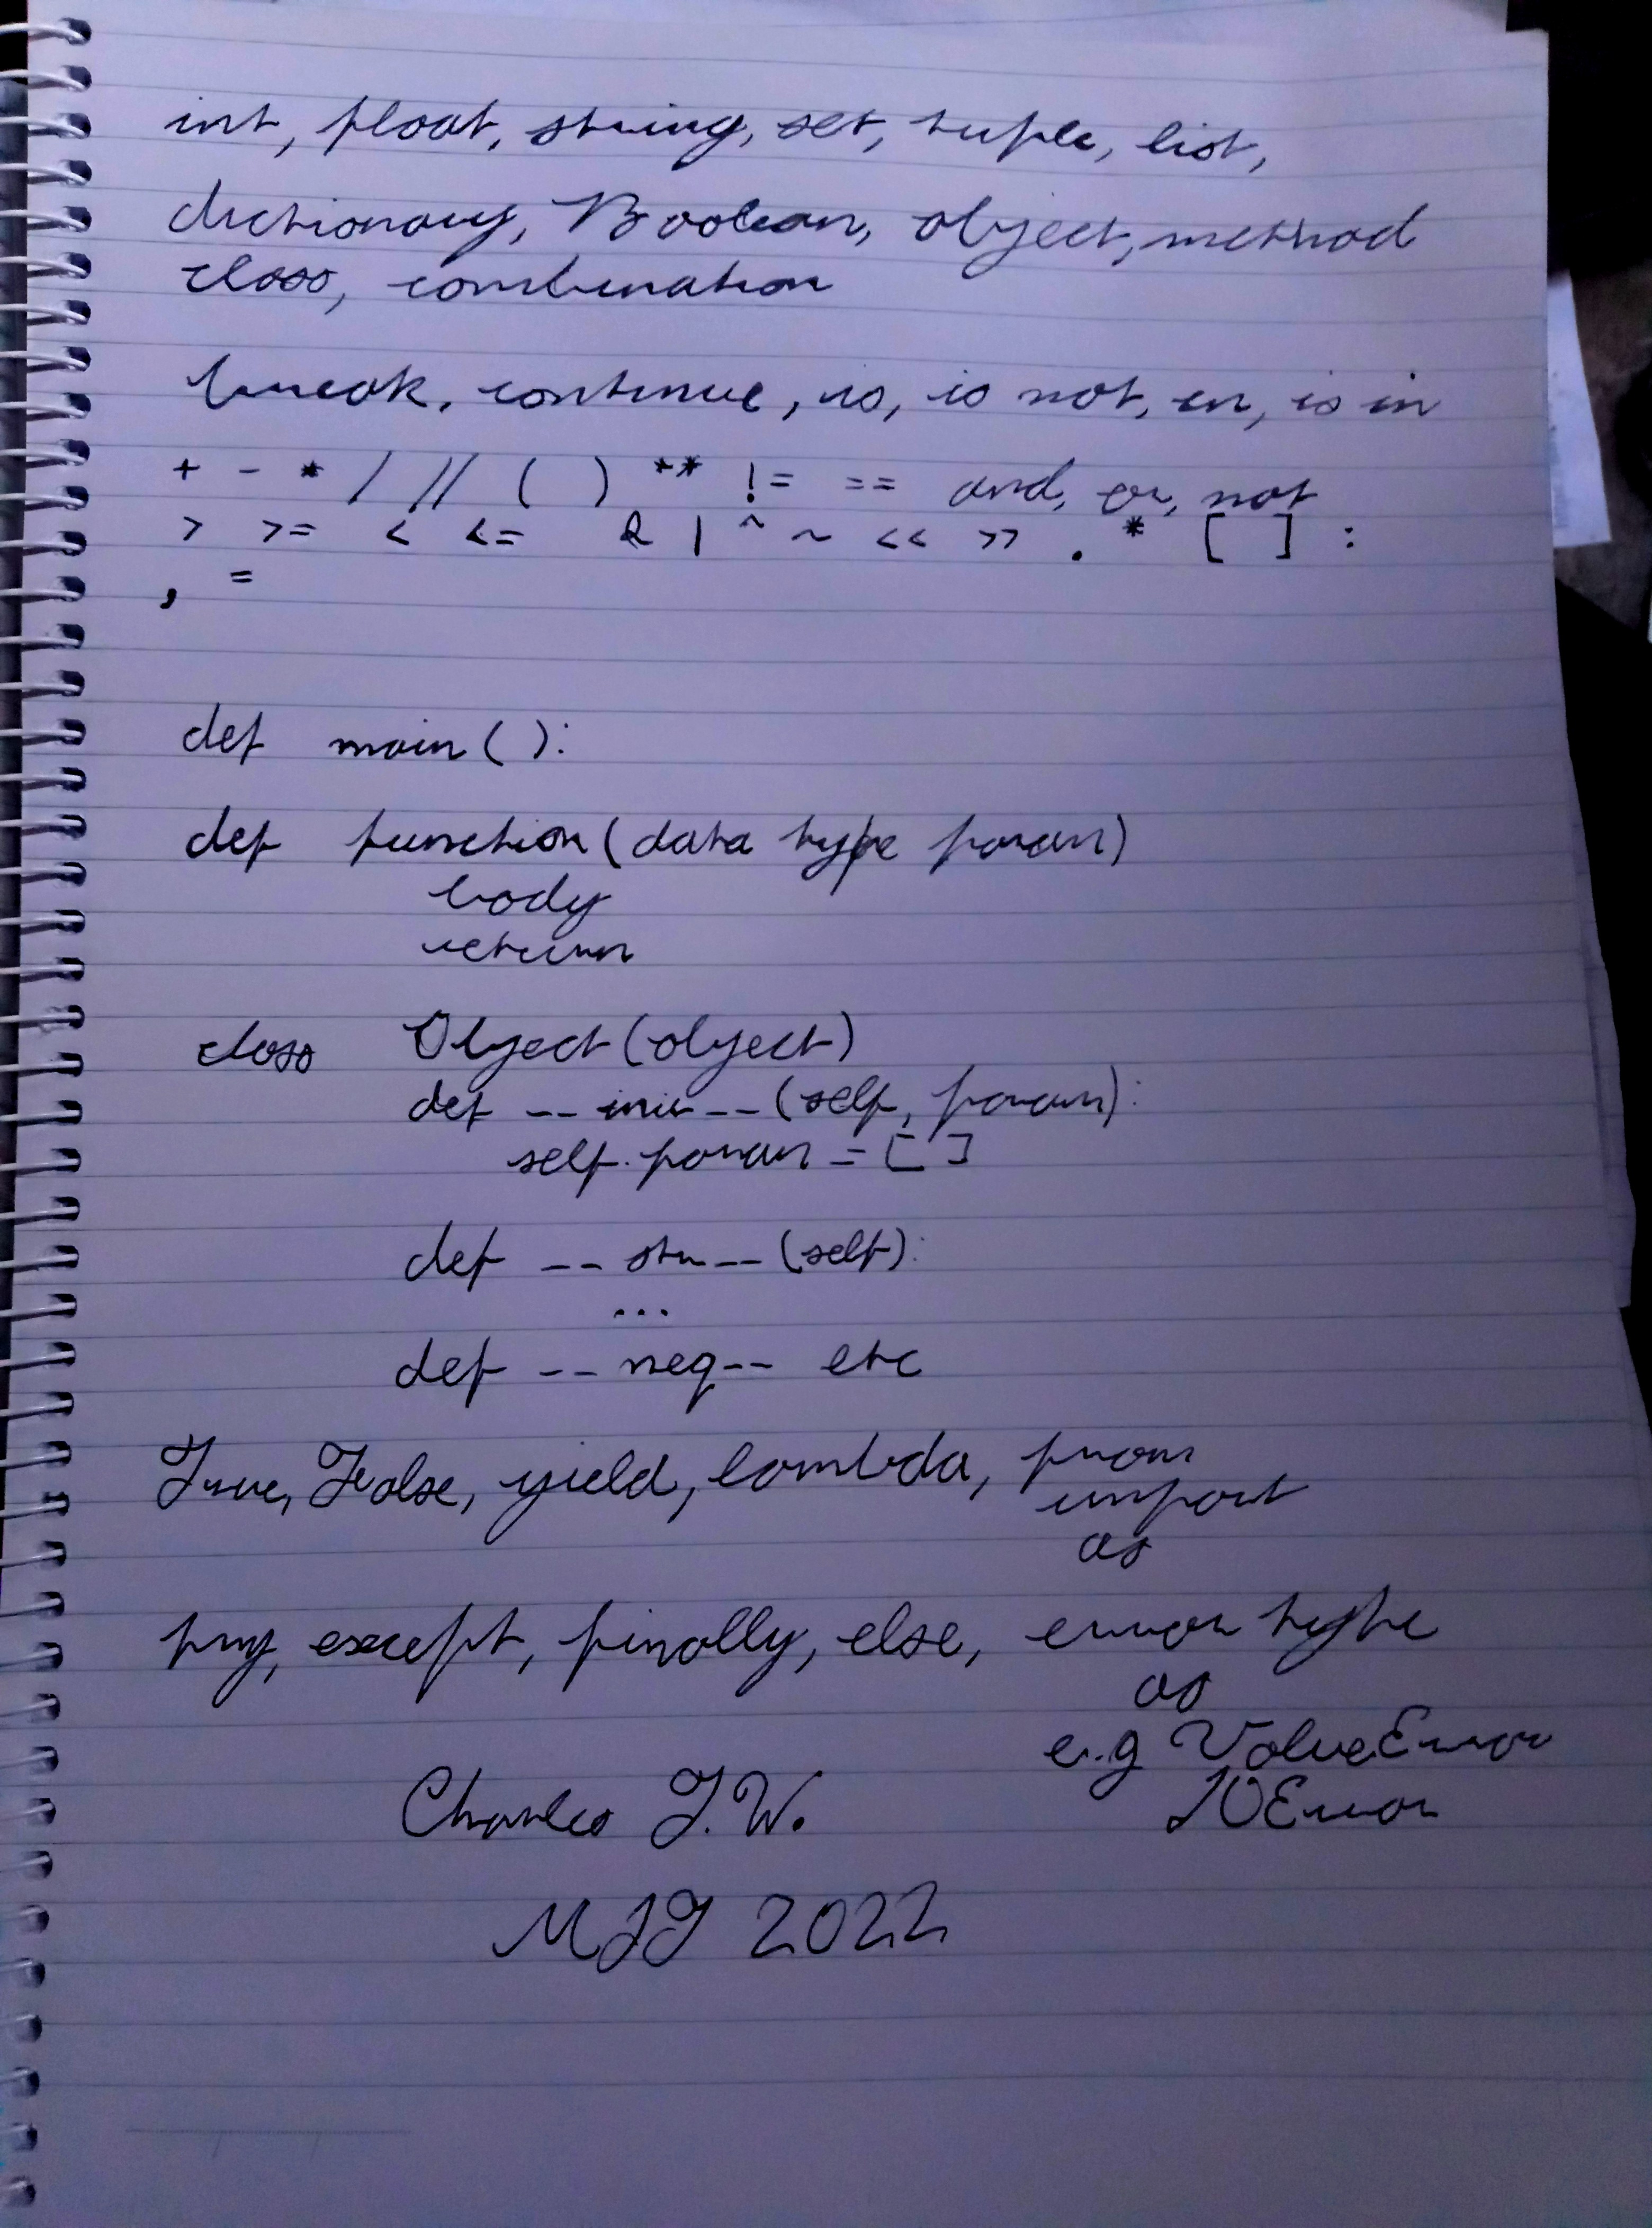 int, float, string, set, tuple, list,
dictionary, Boolean, object, method
class, combination
break, continue, is, is not, in, is in
+ - * / // ( ) ** != == and, or, not
> >= < <= & | ^ ~ << >> . * [ ] :
, =
def main():
def function(data type param)
body
return
class Object(object)
def __init__(self, param):
self.param = [ ]
def __str__(self):
...
def __neg__ etc
True, False, yield, lambda, from
import
as
try, except, finally, else, error type
as
e.g ValueError
IOError
Charles T.W.
2022